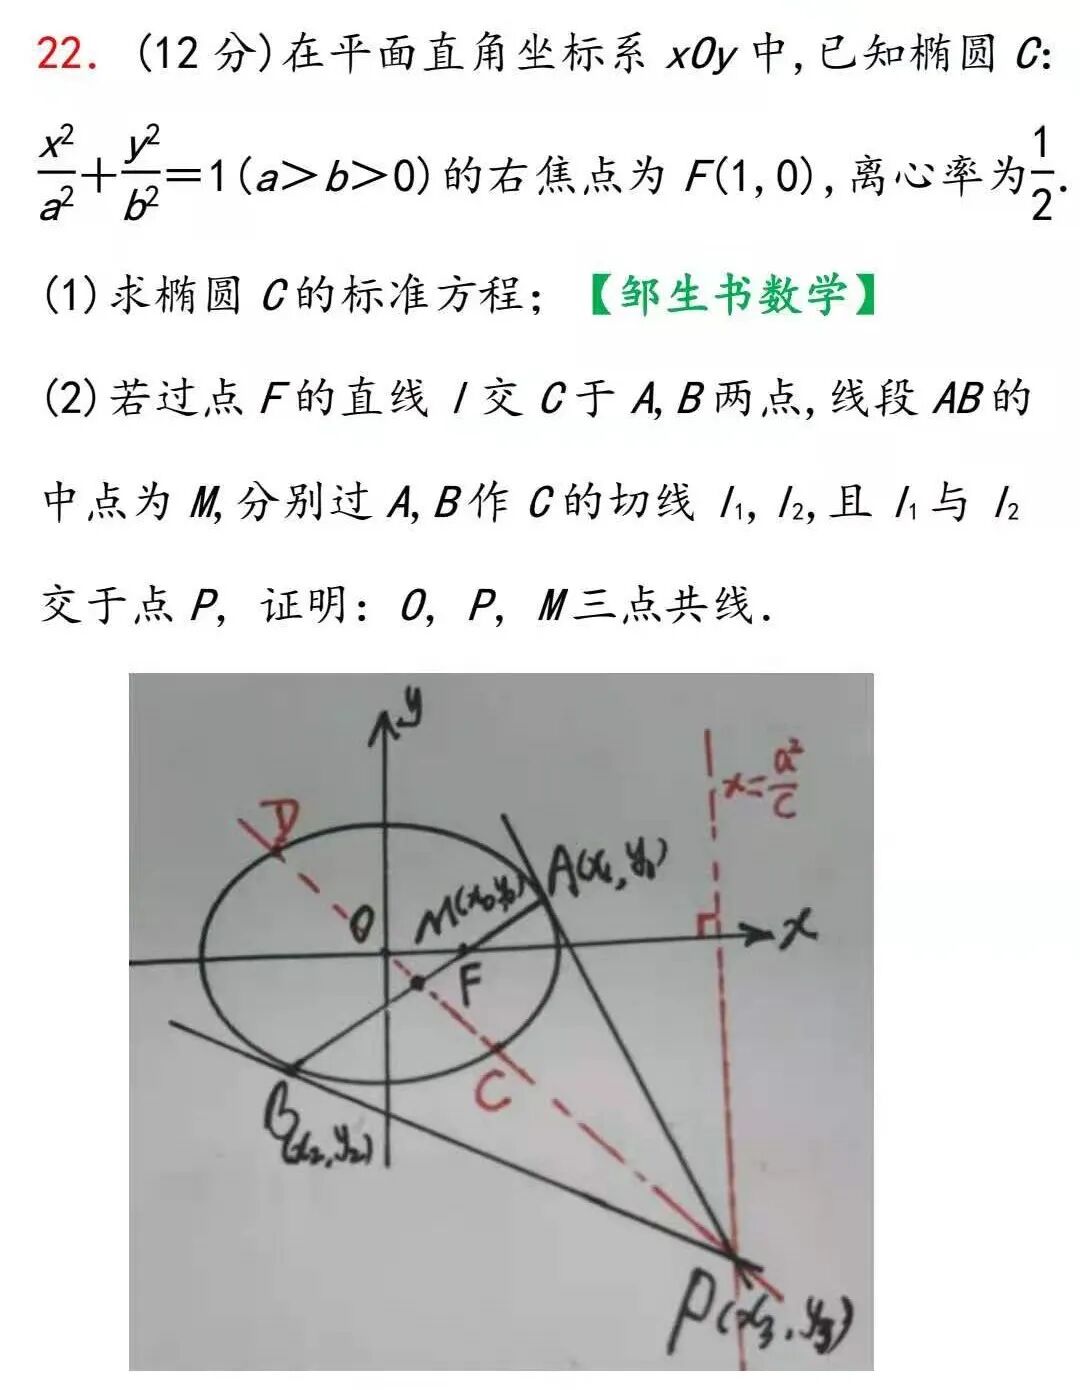 22. (12 分)在平面直角坐标系 xOy 中,已知椭圆 C:
x²/a²+y²/b²=1(a>b>0)的右焦点为 F(1,0),离心率为1/2.
(1)求椭圆 C的标准方程;【邹生书数学】
(2)若过点 F的直线 l 交 C于 A,B两点,线段 AB的
中点为 M,分别过 A,B作 C的切线 l₁, l₂,且 l₁与 l₂
交于点 P, 证明: O, P, M三点共线.
y
x=a²/c
D
A(x₁,y₁)
M(x₀,y₀)
O
x
F
C
B(x₂,y₂)
P(x₃,y₃)